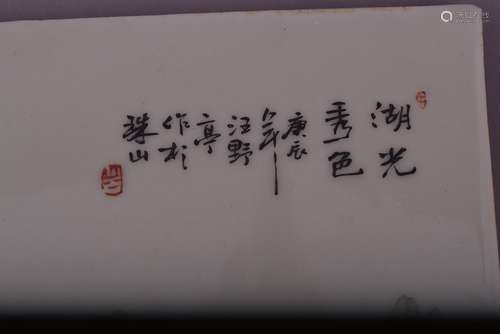 湖光
秀色
庚辰
年
汪野
亭
作於
珠山